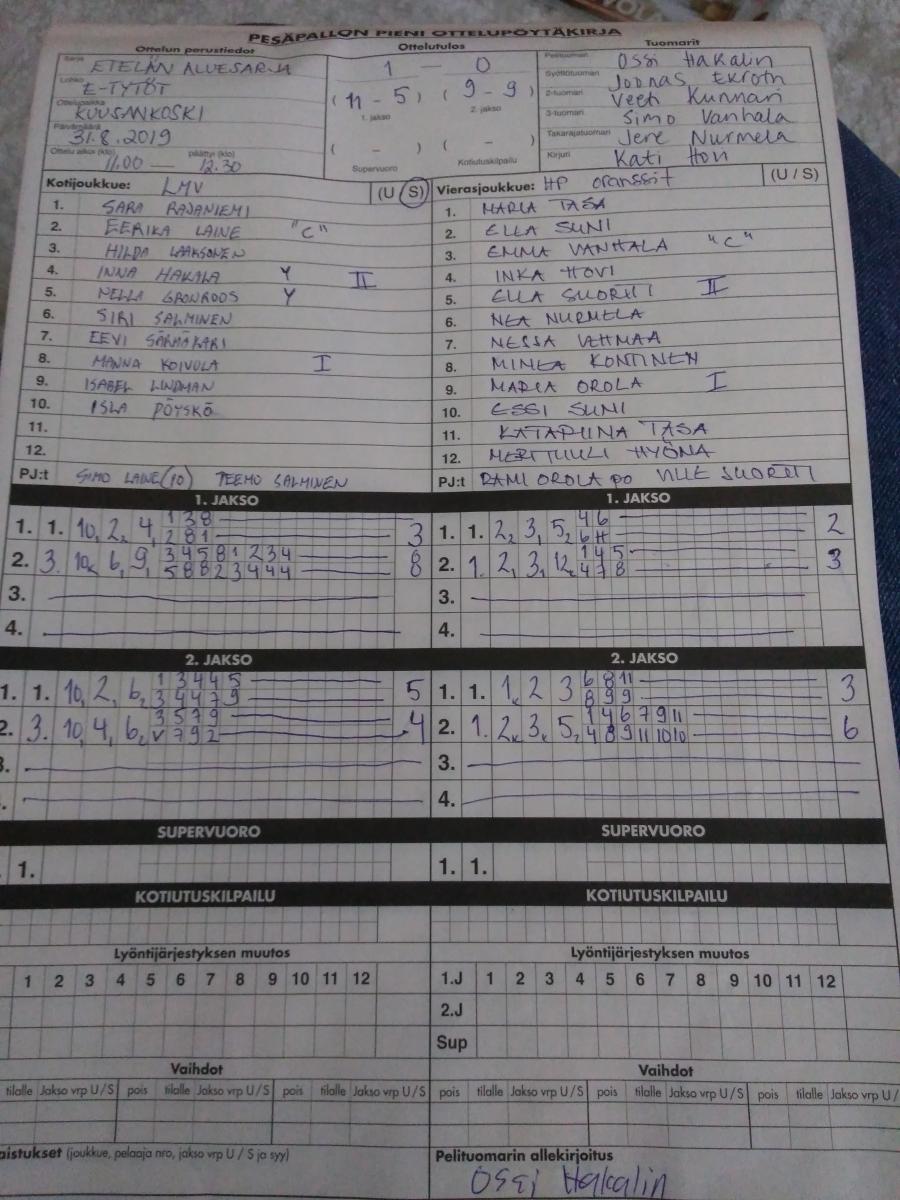 PESÄPALLON PIENI OTTELUPÖYTÄKIRJA
Ottelun perustiedot
Sarja ETELÄN ALUESARJA
Lohko E-TYTÖT
Ottelupaikka KUUSANKOSKI
Päivämäärä 31.8.2019
Ottelu alkoi (klo) 11.00 — päättyi (klo) 12.30
Ottelutulos
1 - 0
(11 - 5) (9 - 9)
1. jakso 2. jakso
( - ) ( - )
Supervuoro Kotiutuskilpailu
Tuomarit
Pelituomari Ossi Hakalin
Syöttötuomari Joonas Ekroth
2-tuomari Veeti Kunnari
3-tuomari Simo Vanhala
Takarajatuomari Jere Nurmela
Kirjuri Kati Hovi
Kotijoukkue: LMV (U / S)
1. SARA RAJANIEMI
2. EERIKA LAINE "C"
3. HILDA LAAKSONEN
4. INNA HAKALA Y II
5. NELLA GRÖNROOS Y
6. SIRI SALMINEN
7. EEVI
8. MANNA KOIVULA I
9. ISABEL LINDMAN
10. ISLA PÖYSKÖ
11.
12.
PJ:t SIMO LAINE (10) TEEMO SALMINEN
Vierasjoukkue: HP oranssit (U / S)
1. MARIA TASA
2. ELLA SUNI
3. EMMA VANHALA "C"
4. INKA HOVI
5. ELLA SUORTTI II
6. NEA NURMELA
7. NESSA VEHMAA
8. MINEA KONTINEN
9. MARIA OROLA I
10. ESSI SUNI
11. KATARIINA TASA
12. MERTTUULI HYÖNÄ
PJ:t RAMI OROLA PO VILLE SUORTTI
1. JAKSO
1. 1. 10, 2, 4, 1 3 8 3
2 8 1
2. 3. 10x 6, 9, 3 4 5 8 1 2 3 4 8
5 8 8 2 3 4 4 4
3.
4.
1. JAKSO
1. 1. 2, 3, 5, 4 6 2
6 H
2. 1. 2, 3, 12x 1 4 5 3
4 7 8
3.
4.
2. JAKSO
1. 1. 10, 2, 6, 1 3 4 4 5 5
3 4 4 7 9
2. 3. 10, 4, 6, 3 5 7 9 4
V 7 9 2
3.
2. JAKSO
1. 1. 1x 2 3 6 8 11 3
8 9 9
2. 1. 2x 3x 5, 1 4 6 7 9 11 6
4 8 9 11 10 10
3.
4.
SUPERVUORO
1.
SUPERVUORO
1. 1.
KOTIUTUSKILPAILU
KOTIUTUSKILPAILU
Lyöntijärjestyksen muutos
1 2 3 4 5 6 7 8 9 10 11 12
Lyöntijärjestyksen muutos
1.J 1 2 3 4 5 6 7 8 9 10 11 12
2.J
Sup
Vaihdot
tilalle Jakso vrp U / S pois tilalle Jakso vrp U / S pois tilalle Jakso vrp U / S
Vaihdot
pois tilalle Jakso vrp U / S pois tilalle Jakso vrp U / S pois tilalle Jakso vrp U /
aistukset (joukkue, pelaaja nro, jakso vrp U / S ja syy)
Pelituomarin allekirjoitus
Ossi Hakalin